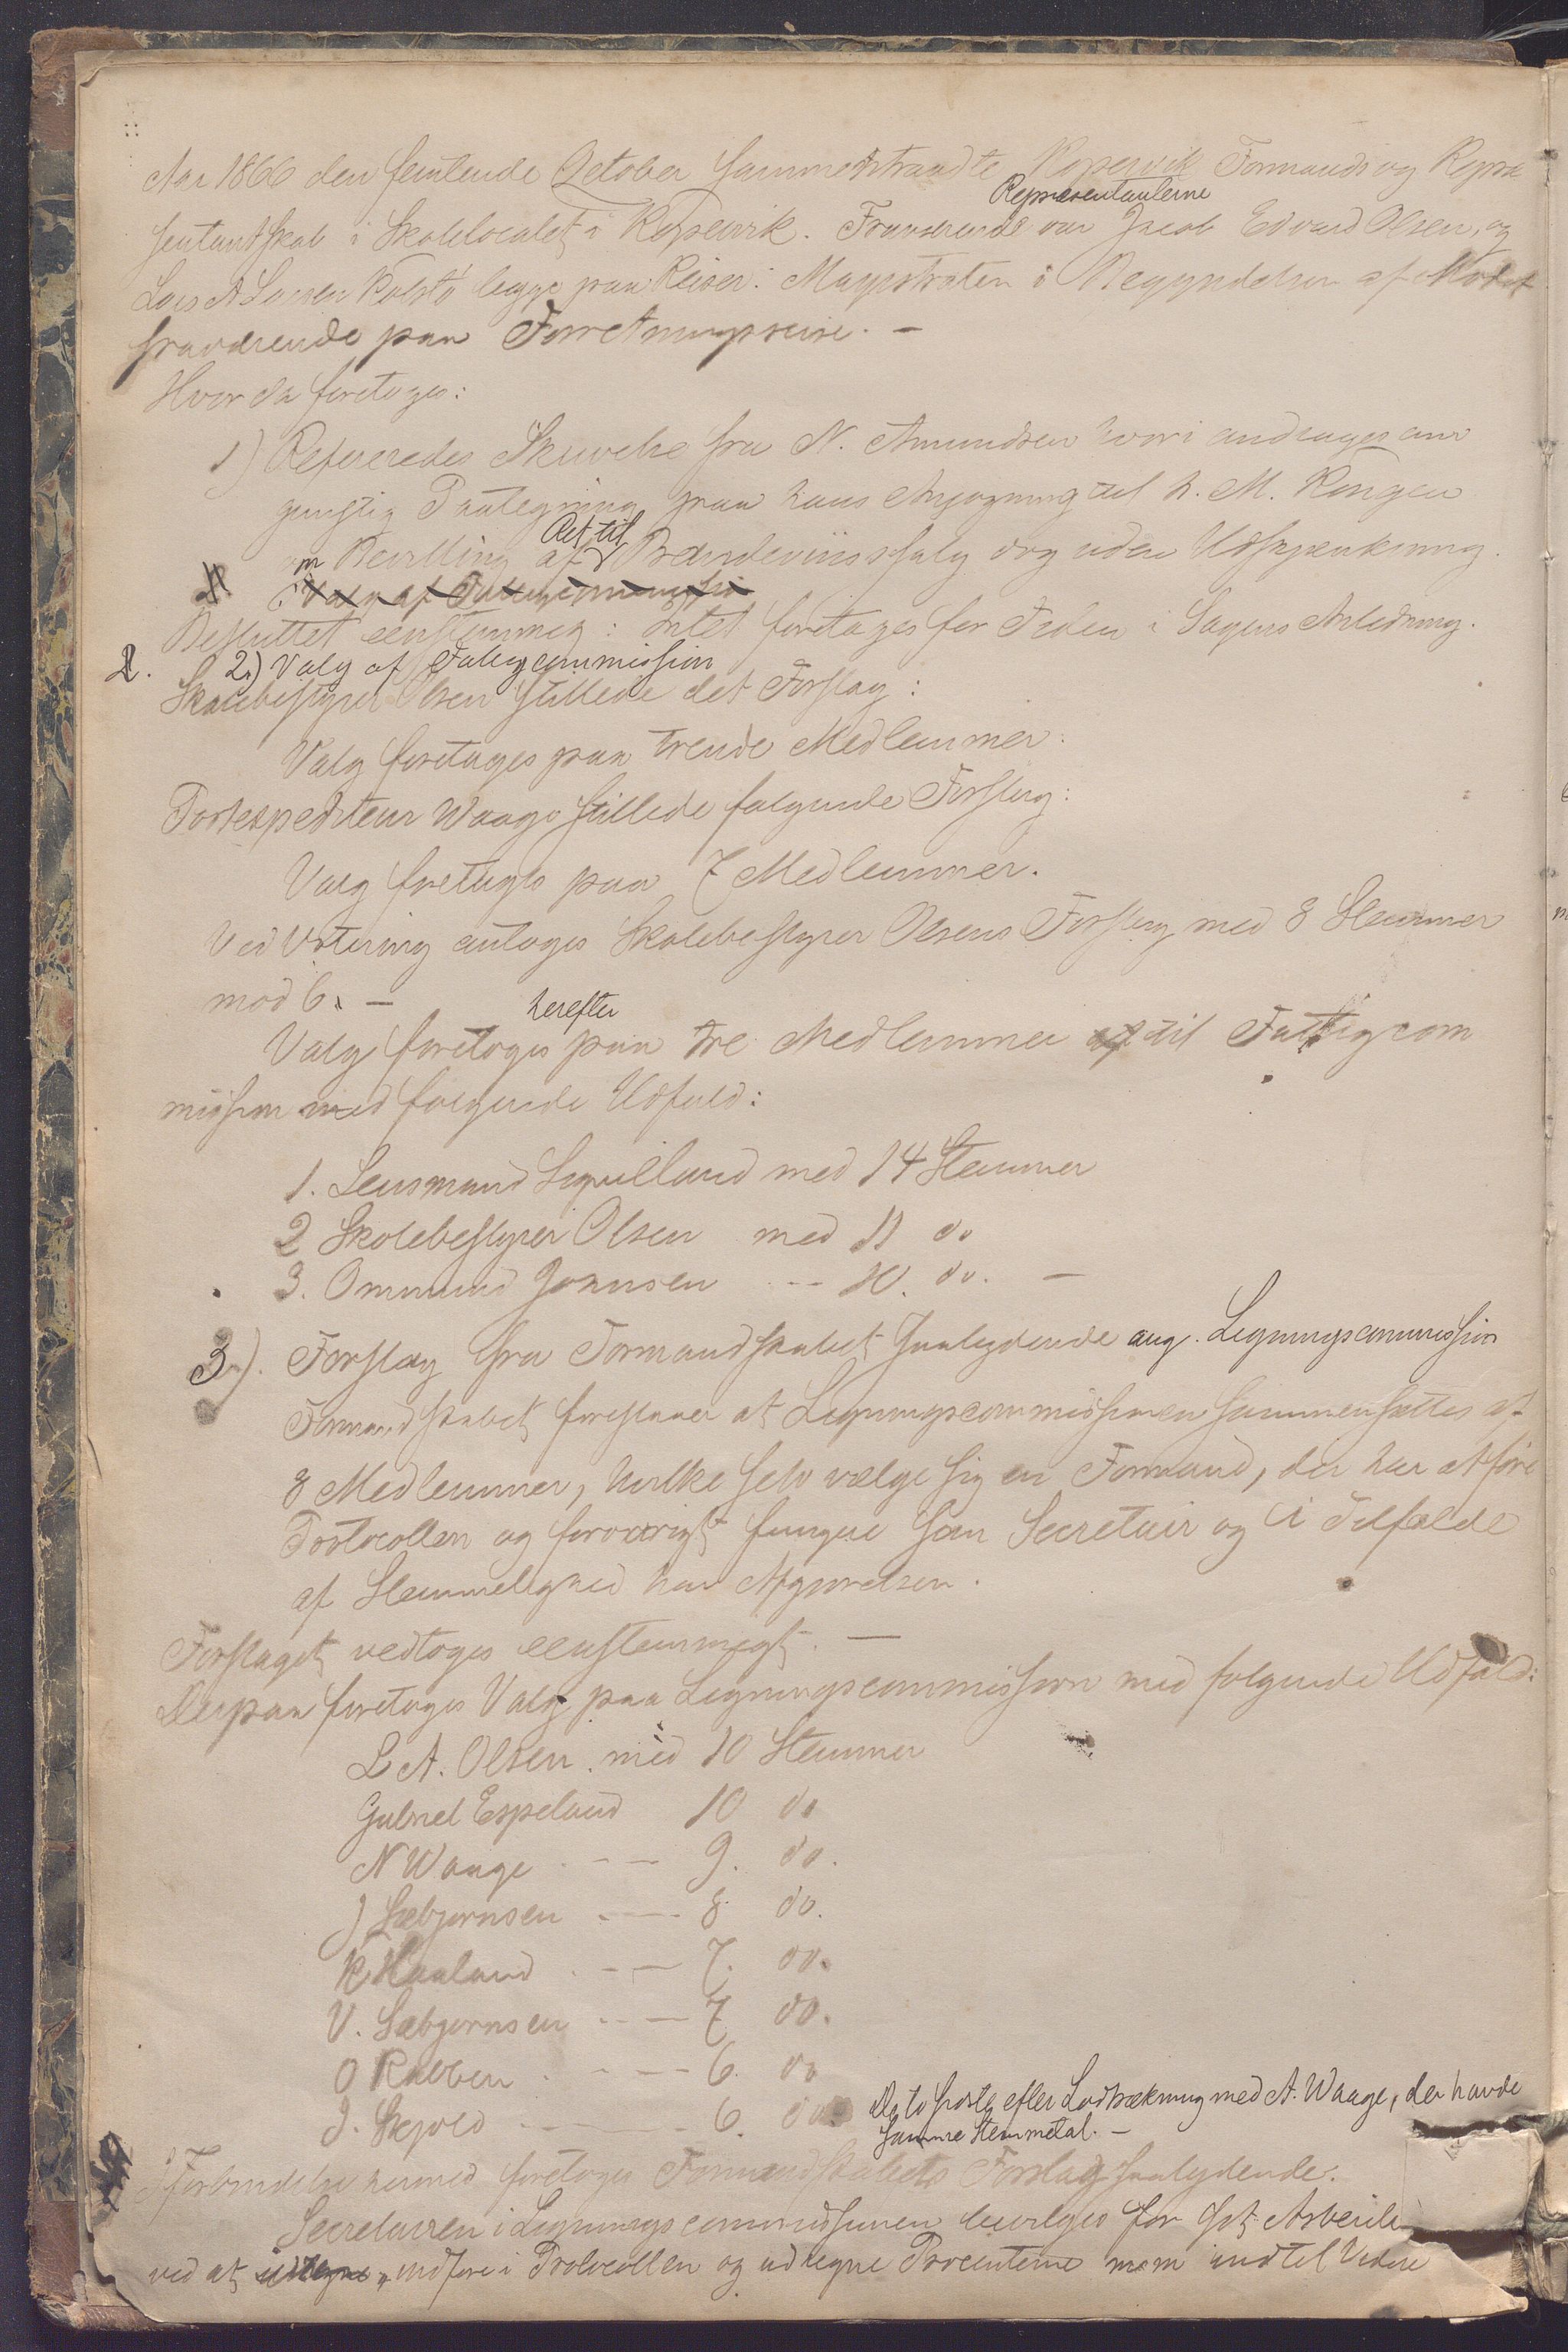 Aar 1866 den femtende October sammentraadte Kopervik Formands og Repræ
Repræsentanterne
sentantskab i Skolelocalet i Kopervik. Fraværende var Jacob Edvard Olsen, og
Lars A Larsen Kolstø begge paa Reiser. Magistraten i Begyndelsen af Mødet
fraværende paa Forretningsreise. —
Hvor da foretoges:
1) Refereredes Skrivelse fra N. Amundsen hvori andrages om
gunstig Paategning paa hans Ansøgning til H. M. Kongen
Ret til
om Bevilling af Brændeviinssalg dog uden Udskjænkning.
Valg af Fattigcommission
Besluttet eenstemmig: Intet foretages for Tiden i Sagens Anledning.
2. 2.) Valg af Fattigcommission
Skolebestyrer Olsen stillede det Forslag:
Valg foretages paa trende Medlemmer.
Postexpediteur Waage stillede følgende Forslag:
Valg foretages paa 7 Medlemmer.
Ved Votering antoges Skolebestyrer Olsens Forslag med 8 Stemmer
mod 6. —
herefter
Valg foretoges paa tre Medlemmer af til Fattigcom
mission med følgende Udfald:
1. Lensmand med 14 Stemmer
2 Skolebestyrer Olsen med 11 do
3. Ommund Johnsen --- 10. do. —
3). Forslag fra Formandskabet saalydende ang. Ligningscommission
Formandskabet foreslaaer at Ligningscommissionen sammensættes af
8 Medlemmer, hvilke selv vælge sig en Formand, der har at føre
Protocollen og forøvrigt fungere som Secretair og i Tilfælde
af Stemmelighed har Afgjørelsen.
Forslaget vedtoges eenstemmigt. —
Derpaa foretoges Valg paa Ligningscommission med følgende Udfald:
L A. Olsen med 10 Stemmer
Gabriel Espeland 10 do
N Waage --- 9. do.
J Sæbjørnsen --- 8. do.
K Haaland --- 7. do.
V. Sæbjørnsen --- 7 do.
O Rabben --- 6. do
J. Skjold --- 6. do. De to sidste efter Lodtrækning med A. Waage, der havde
samme Stemmetal. —
I Forbindelse hermed foretoges Formandskabets Forslag saalydende.
Secretairen i Ligningscommissionen bevilges for sit Arbeide
ved at indføre i Protocollen og udregne Procenterne m m indtil Videre